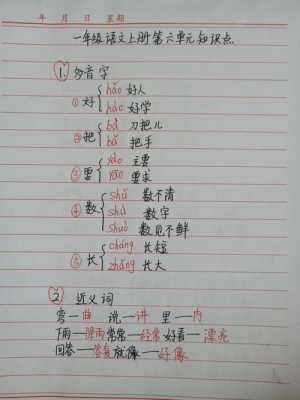 年 月 日 星期
一年级语文上册第六单元知识点
1. 多音字
①好 hǎo 好人
hào 好学
②把 bà 刀把儿
bǎ 把手
③要 yào 主要
yāo 要求
④数 shǔ 数不清
shù 数字
shuò 数见不鲜
⑤长 cháng 长短
zhǎng 长大
2. 近义词
弯—曲 说—讲 里—内
下雨—降雨 常常—经常 好看—漂亮
回答—答复 就像—好像